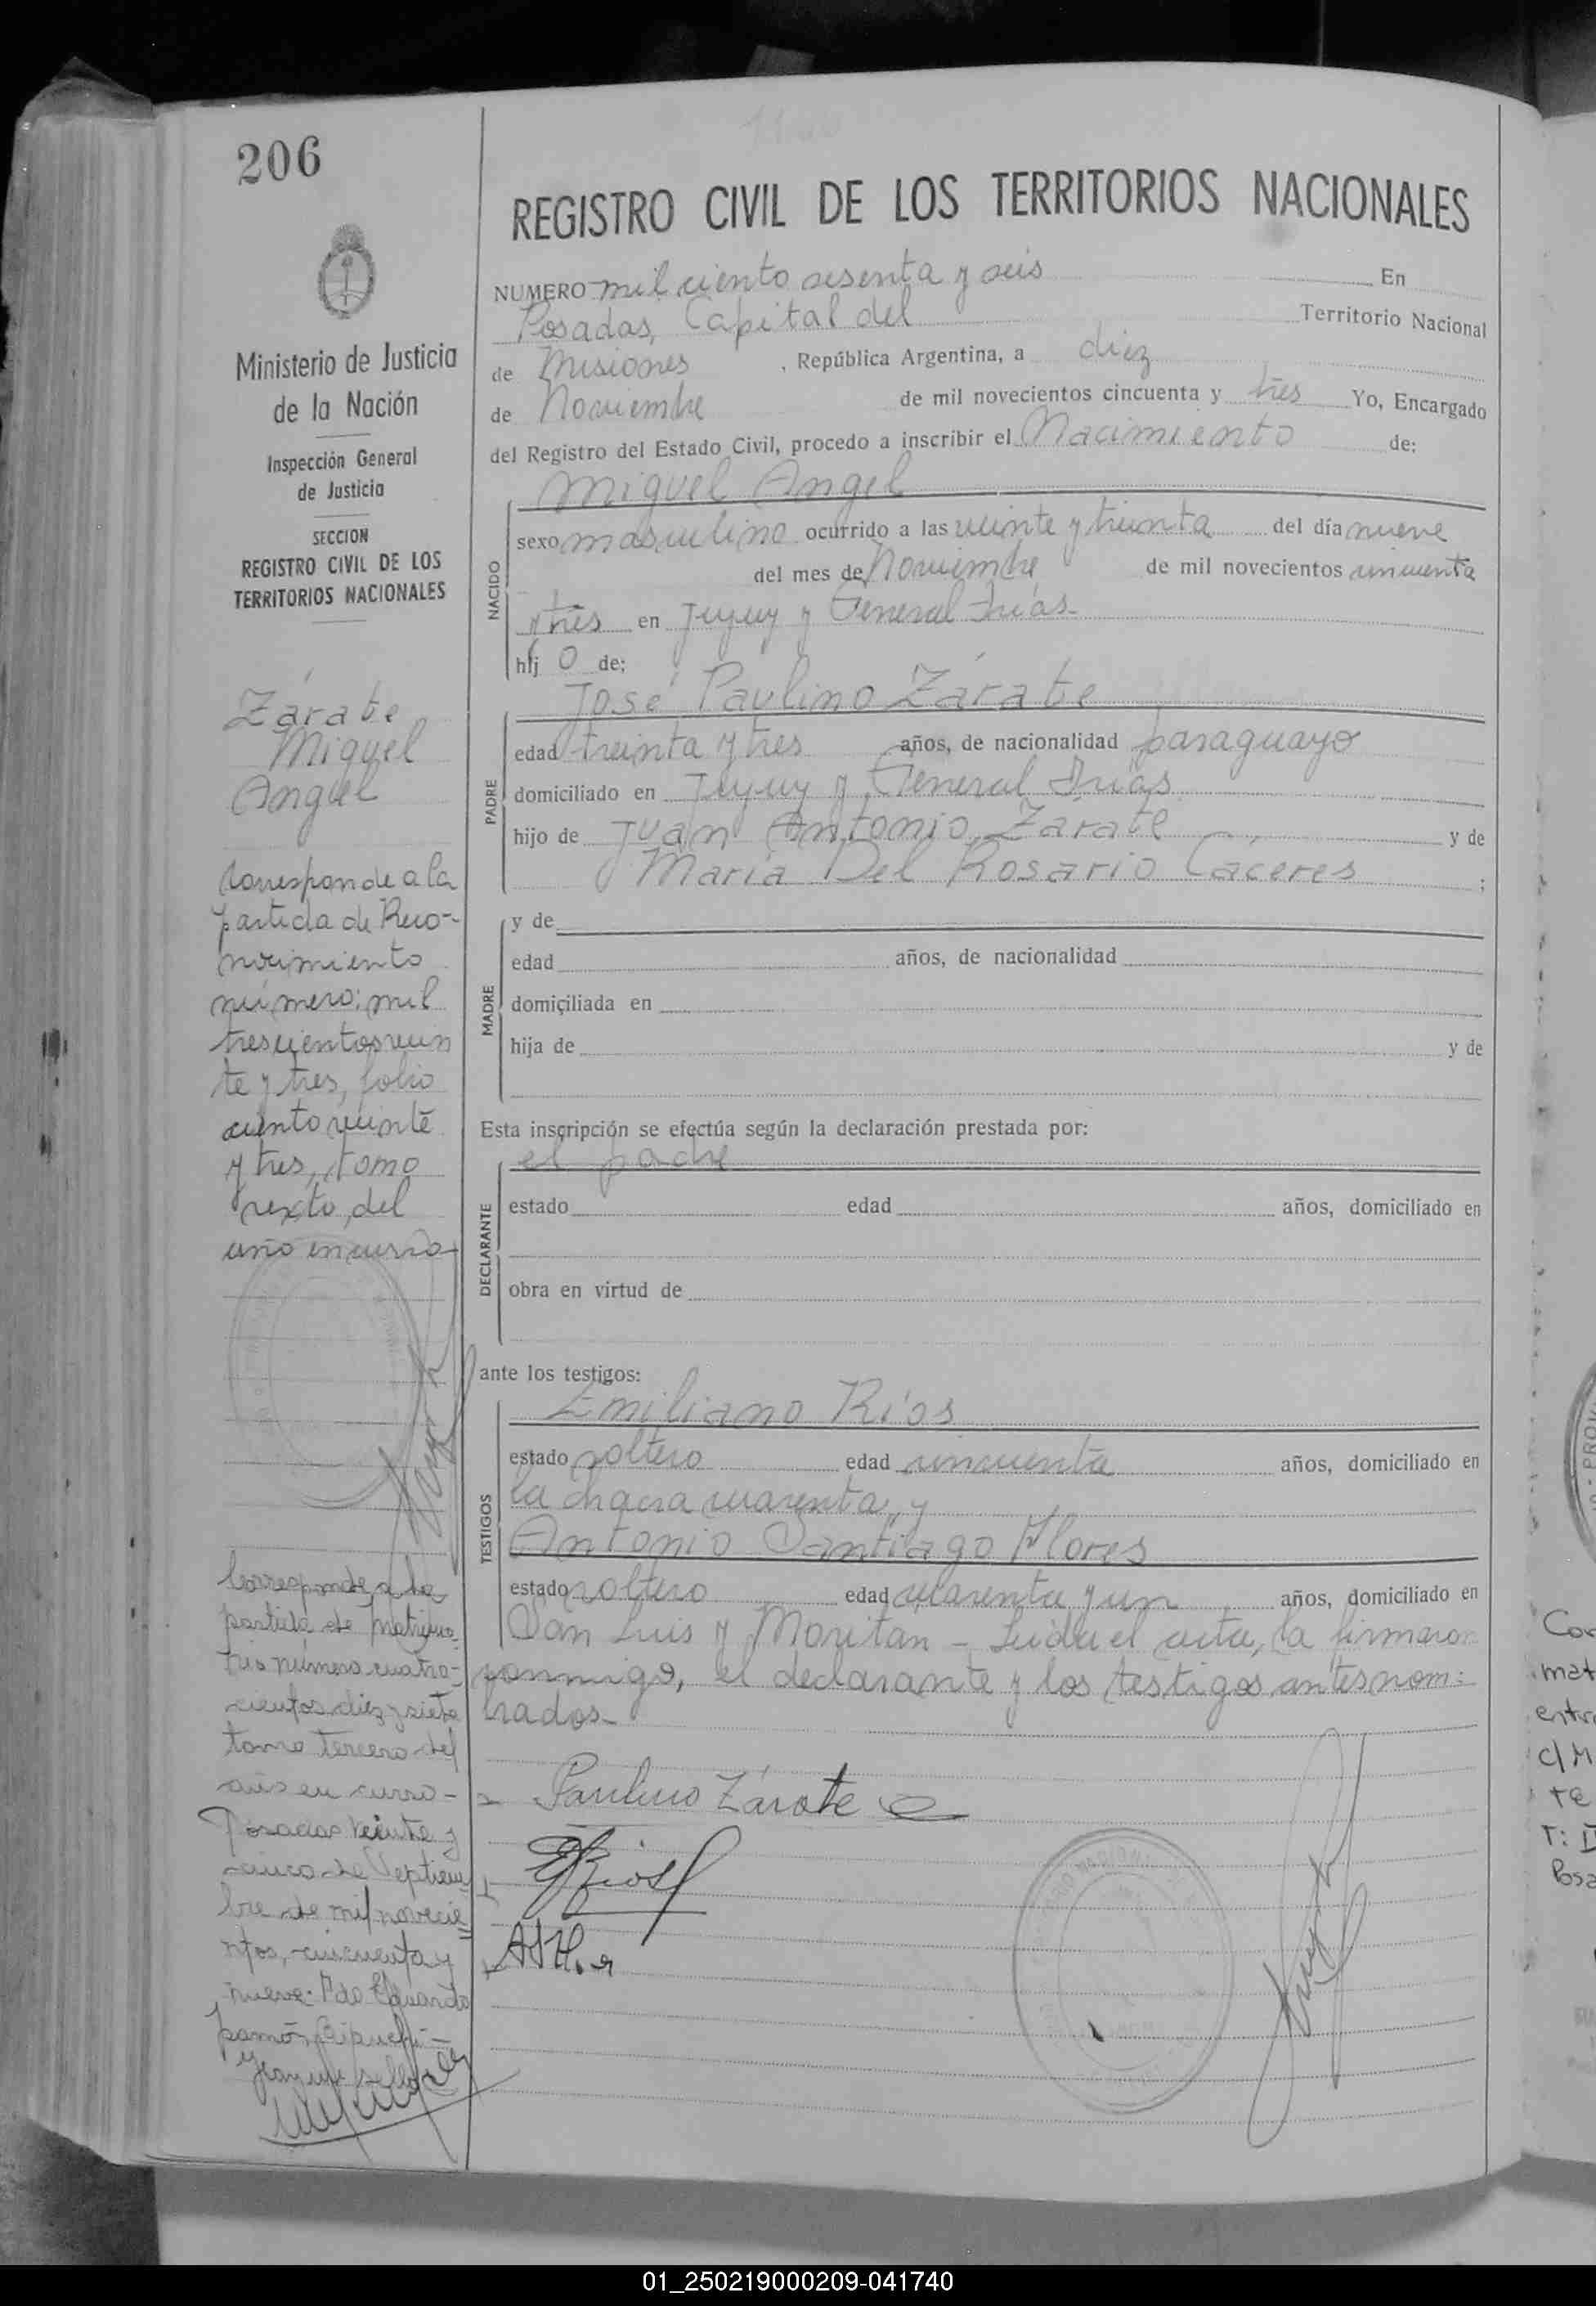 206
Ministerio de Justicia
de la Nación
Inspección General
de Justicia
SECCION
REGISTRO CIVIL DE LOS
TERRITORIOS NACIONALES
Zárate
Miguel
Angel
Corresponde a la
partida de Reco-
nocimiento
número: mil
trescientos vein
te y tres, folio
ciento veinte
y tres, tomo
sexto, del
año en curso
Corresponde a la
partida de Matrimo-
nio número cuatro-
cientos diez y siete
tomo tercero del
año en curso-
Posadas veinte y
cinco de Septiem
bre de mil novecie
ntos, cincuenta y
nueve: Fdo Eduardo
Ramón
REGISTRO CIVIL DE LOS TERRITORIOS NACIONALES
NUMERO mil ciento sesenta y seis En
Posadas, Capital del Territorio Nacional
de Misiones , República Argentina, a diez
de Noviembre de mil novecientos cincuenta y tres Yo, Encargado
del Registro del Estado Civil, procedo a inscribir el Nacimiento de:
Miguel Angel
NACIDO
sexo masculino ocurrido a las veinte y treinta del día nueve
del mes de Noviembre de mil novecientos cincuenta
y tres en Jujuy y General Frías-
hij o de:
José Paulino Zárate
PADRE
edad treinta y tres años, de nacionalidad paraguayo
domiciliado en Jujuy y General Frías
hijo de Juan Antonio Zárate y de
María Del Rosario Cáceres ;
MADRE
y de
edad años, de nacionalidad
domiciliada en
hija de y de
Esta inscripción se efectúa según la declaración prestada por:
el padre
DECLARANTE
estado edad años, domiciliado en
obra en virtud de
ante los testigos:
Emiliano Ríos
TESTIGOS
estado soltero edad cincuenta años, domiciliado en
la chacra cuarenta, y
Antonio Santiago Flores
estado soltero edad cuarenta y un años, domiciliado en
San Luis y Moritan - Leída el acta, la firmaron
conmigo, el declarante y los testigos antes nom:
brados-
Paulino Zárate
ERíos
01_250219000209-041740